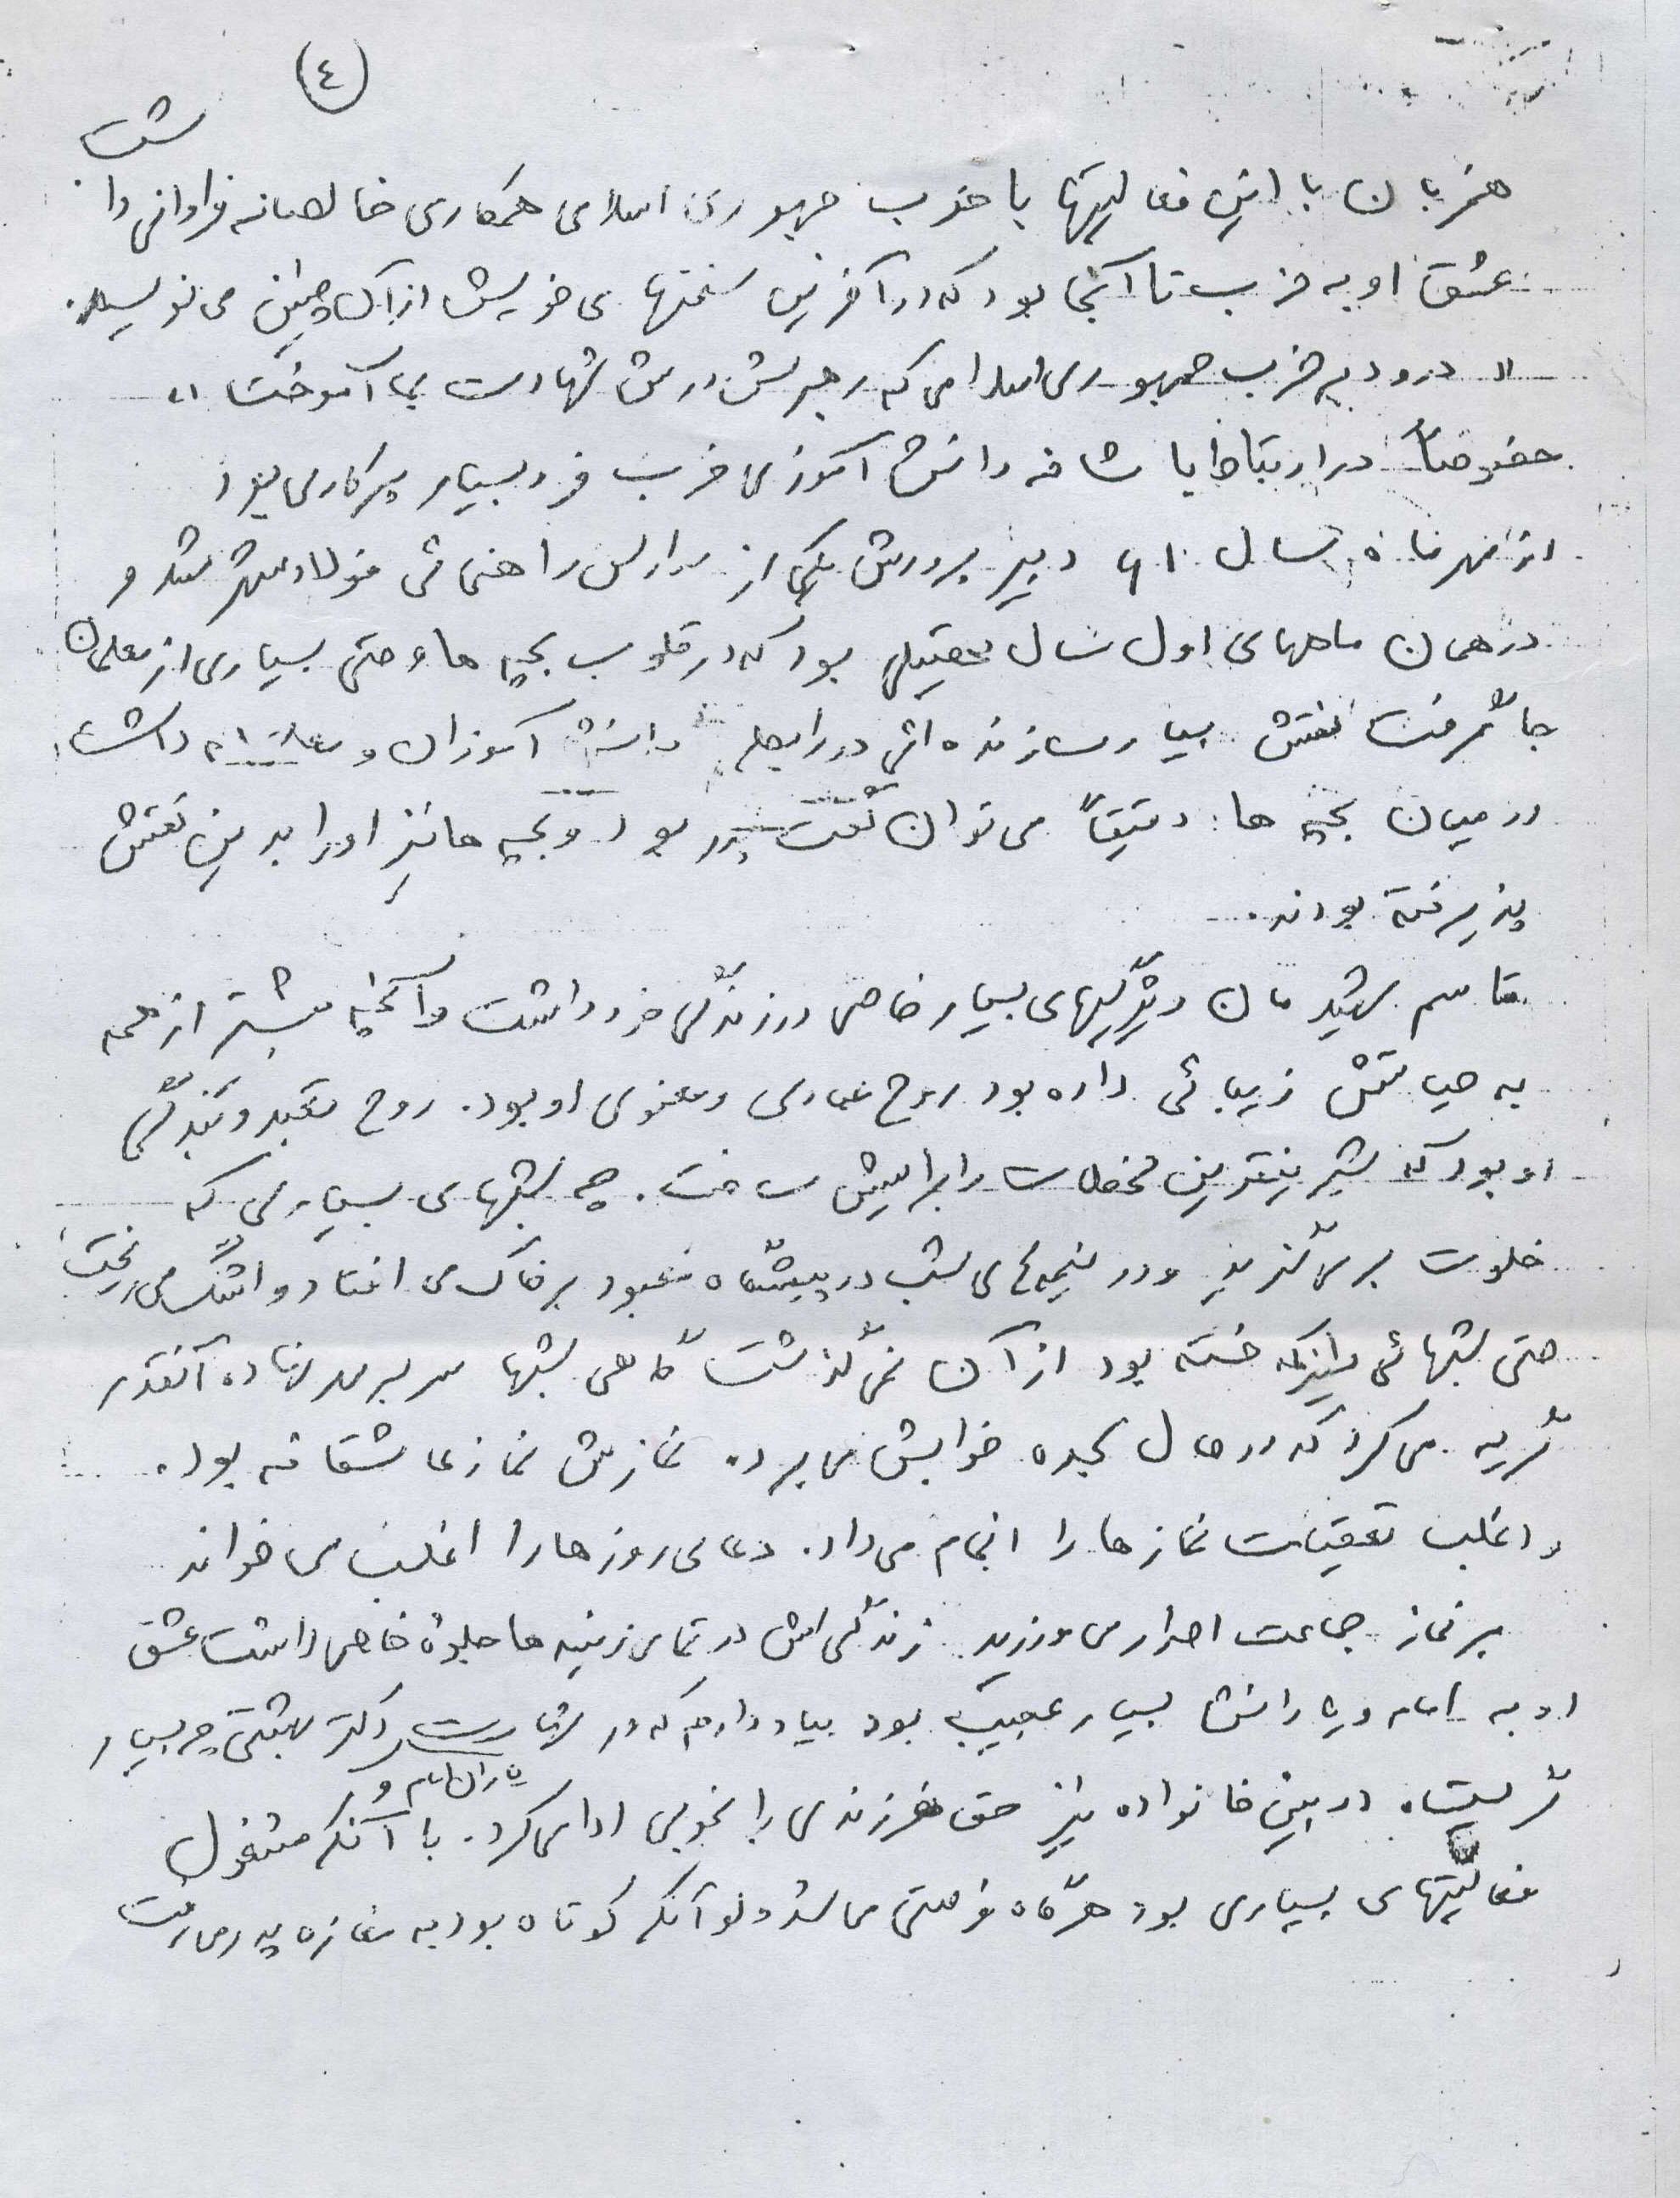 (٤)
همزمان با این فعالیتها با حزب جمهوری اسلامی همکاری خالصانه فراوانی داشت
عشق او به حزب تا آنجا بود که در آخرین سخنهای خویش از آن چنین می نویسد.
" درود بر حزب جمهوری اسلامی که رهبرش درس شهادت بما آموخت "
خصوصاً در ارتباط با شاخه دانش آموزی حزب فرد بسیار پرکاری بود
از مهرماه سال ٦١ دبیر پرورش یکی از مدارس راهنمائی فولادشهر شد و
در همان ماههای اول سال تحصیلی بود که در قلوب بچه ها و حتی بسیاری از معلمان
جا گرفت نقش بسیار سازنده ائی در رابطه دانش آموزان و داشت
در میان بچه ها دقیقاً می توان گفت پدر بود و بچه ها نیز او را بدین نقش
پذیرفته بودند.
قاسم شهیدمان ویژگیهای بسیار خاصی در زندگی خود داشت و آنچه بیشتر از همه
به حیاتش زیبائی داده بود روح عبادی و معنوی او بود. روح تعبد و بندگی
او بود که شیرینترین لحظات را برایش ساخت. چه شبهای بسیاری که
خلوت بر می گزید و در نیمه های شب در پیشگاه معبود بر خاک می افتاد و اشک می ریخت
حتی شبهائی نیز که خسته بود از آن نمی گذشت گاهی شبها سر بر مهر نهاده آنقدر
گریه می کرد که در حال سجده خوابش می برد. نمازش نماز عاشقانه بود.
و اغلب تعقیبات نمازها را انجام می داد. دعای روزها را اغلب می خواند
بر نماز جماعت اصرار می ورزید. زندگی اش در تمامی زمینه ها جلوۀ خاصی داشت عشق
او به امام و یارانش بسیار عجیب بود بیاد دارم که در شهادت یاران امام و دکتر بهشتی چه بسیار
گریست. در بین خانواده نیز حق فرزندی را بخوبی ادا می کرد. با آنکه مشغول
فعالیتهای بسیاری بود هرگاه فرصتی می شد ولو آنکه کوتاه بود به مغازه پدر می رفت